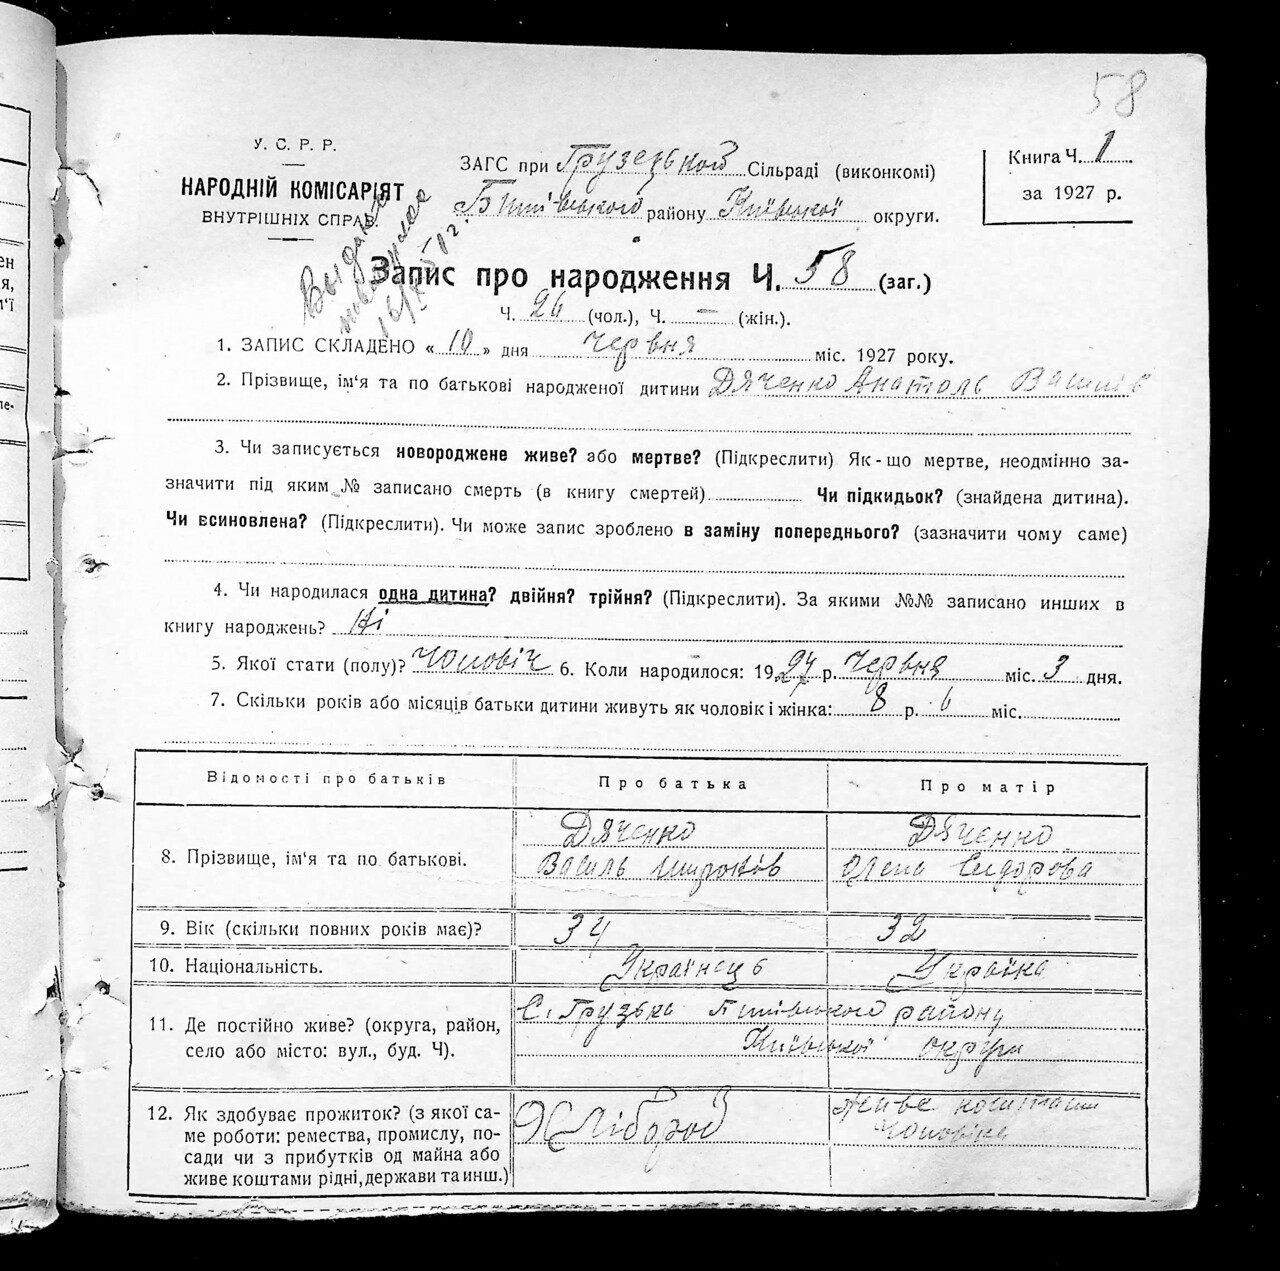 58
У. С. Р. Р.
НАРОДНІЙ КОМІСАРІЯТ
ВНУТРІШНІХ СПРАВ.
ЗАГС при Грузецькой Сільраді (виконкомі)
Бишівського району Київської округи.
Книга Ч. 1
за 1927 р.
Запис про народження Ч. 58 (заг.)
Ч. 26 (чол.), Ч. – (жін.).
1. ЗАПИС СКЛАДЕНО « 10 » дня червня міс. 1927 року.
2. Прізвище, ім'я та по батькові народженої дитини Дяченко Анатоль Василів
3. Чи записується новороджене живе? або мертве? (Підкреслити) Як-що мертве, неодмінно за-
значити під яким № записано смерть (в книгу смертей) Чи підкидьок? (знайдена дитина).
Чи всиновлена? (Підкреслити). Чи може запис зроблено в заміну попереднього? (зазначити чому саме)
4. Чи народилася одна дитина? двійня? трійня? (Підкреслити). За якими №№ записано инших в
книгу народжень? Ні
5. Якої стати (полу)? Чоловіч 6. Коли народилося: 1927 р. Червня міс. 3 дня.
7. Скільки років або місяців батьки дитини живуть як чоловік і жінка: 8 р. 6 міс.
Відомості про батьків Про батька Про матір
8. Прізвище, ім'я та по батькові.
Дяченко
Василь Миронів
Дяченко
Олена Сидорова
9. Вік (скільки повних років має)? 34 32
10. Національність. Українець Українка
11. Де постійно живе? (округа, район,
село або місто: вул., буд. Ч).
С. Грузька Бишівського району
Київської округи
12. Як здобуває прожиток? (з якої са-
ме роботи: ремества, промислу, по-
сади чи з прибутків од майна або
живе коштами рідні, держави та инш.)
Хлібороб
живе коштами
чоловіка